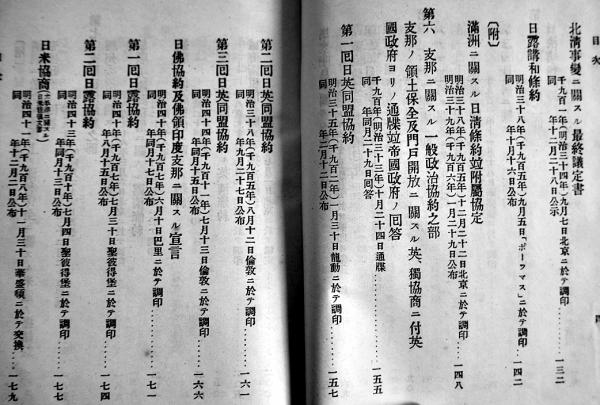 目次
四
北淸事變ニ關スル最終議定書
千九百一年(明治三十四年)九月七日北京ニ於テ調印
同 年十二月二十八日公示………一三二
日露講和條約
明治三十八年(千九百五年)九月五日、「ポーツマス」ニ於テ調印
同 年十月十六日公布………一四二
〔附〕
滿洲ニ關スル日淸條約竝附屬協定
明治三十八年(千九百五年)十二月二十二日北京ニ於テ調印
明治三十九年(千九百六年)一月二十九日公布………一四八
第六 支那ニ關スル一般政治協約之部
支那ノ領土保全及門戶開放ニ關スル英、獨協商ニ付英
國政府ヨリノ通牒竝帝國政府ノ回答
千九百年(明治三十三年)十月二十四日通牒
同 年同月二十九日回答………一五五
第一回日英同盟協約
明治三十五年(千九百二年)一月三十日龍動ニ於テ調印
同 年二月十二日公布………一五七
第二回日英同盟協約
明治三十八年(千九百五年)八月十二日倫敦ニ於テ調印
同 年九月二十七日公布………一六一
第三回日英同盟協約
明治四十四年(千九百十一年)七月十三日倫敦ニ於テ調印
同 年同月十五日公布………一六六
日佛協約及佛領印度支那ニ關スル宣言
明治四十年(千九百七年)六月十日巴里ニ於テ調印
同 年同月十七日公布………一七一
第一回日露協約
明治四十年(千九百七年)七月三十日聖彼得堡ニ於テ調印
同 年八月十五日公布………一七四
第二回日露協約
明治四十三年(千九百十年)七月四日聖彼得堡ニ於テ調印
同 年同月十三日公布………一七七
日米協商
明治四十一年(千九百八年)十一月三十日華盛頓ニ於テ交換
同 年十二月二日公布………一七九